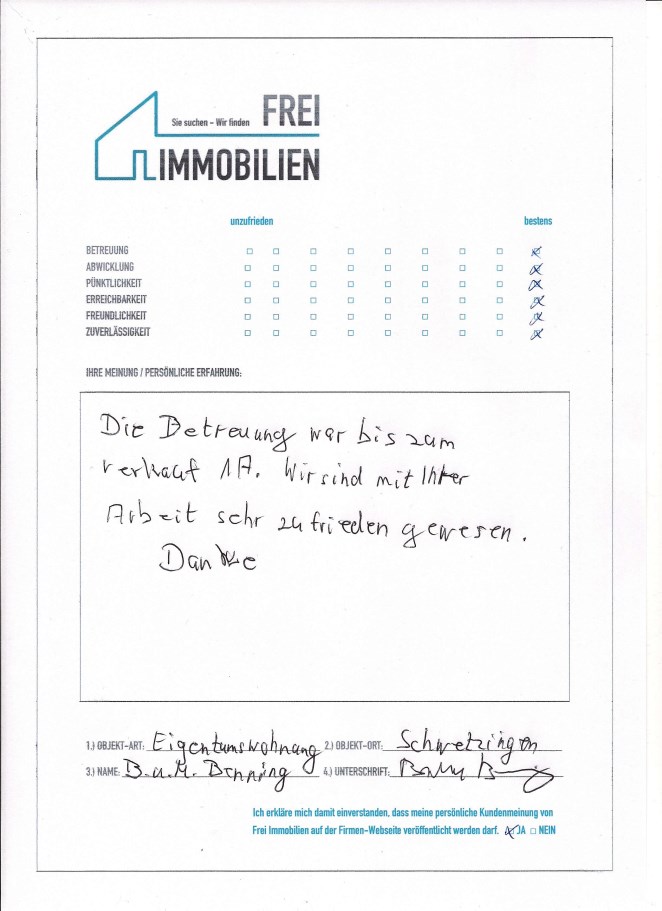 Sie suchen – Wir finden FREI
IMMOBILIEN
unzufrieden bestens
BETREUUNG
ABWICKLUNG
PÜNKTLICHKEIT
ERREICHBARKEIT
FREUNDLICHKEIT
ZUVERLÄSSIGKEIT
IHRE MEINUNG / PERSÖNLICHE ERFAHRUNG:
Die Betreuung war bis zum
verkauf 1A. Wir sind mit Ihrer
Arbeit sehr zufrieden gewesen.
Danke
1.) OBJEKT-ART: Eigentumswohnung 2.) OBJEKT-ORT: Schwetzingen
3.) NAME: B.u.M. 4.) UNTERSCHRIFT:
Ich erkläre mich damit einverstanden, dass meine persönliche Kundenmeinung von
Frei Immobilien auf der Firmen-Webseite veröffentlicht werden darf. JA NEIN